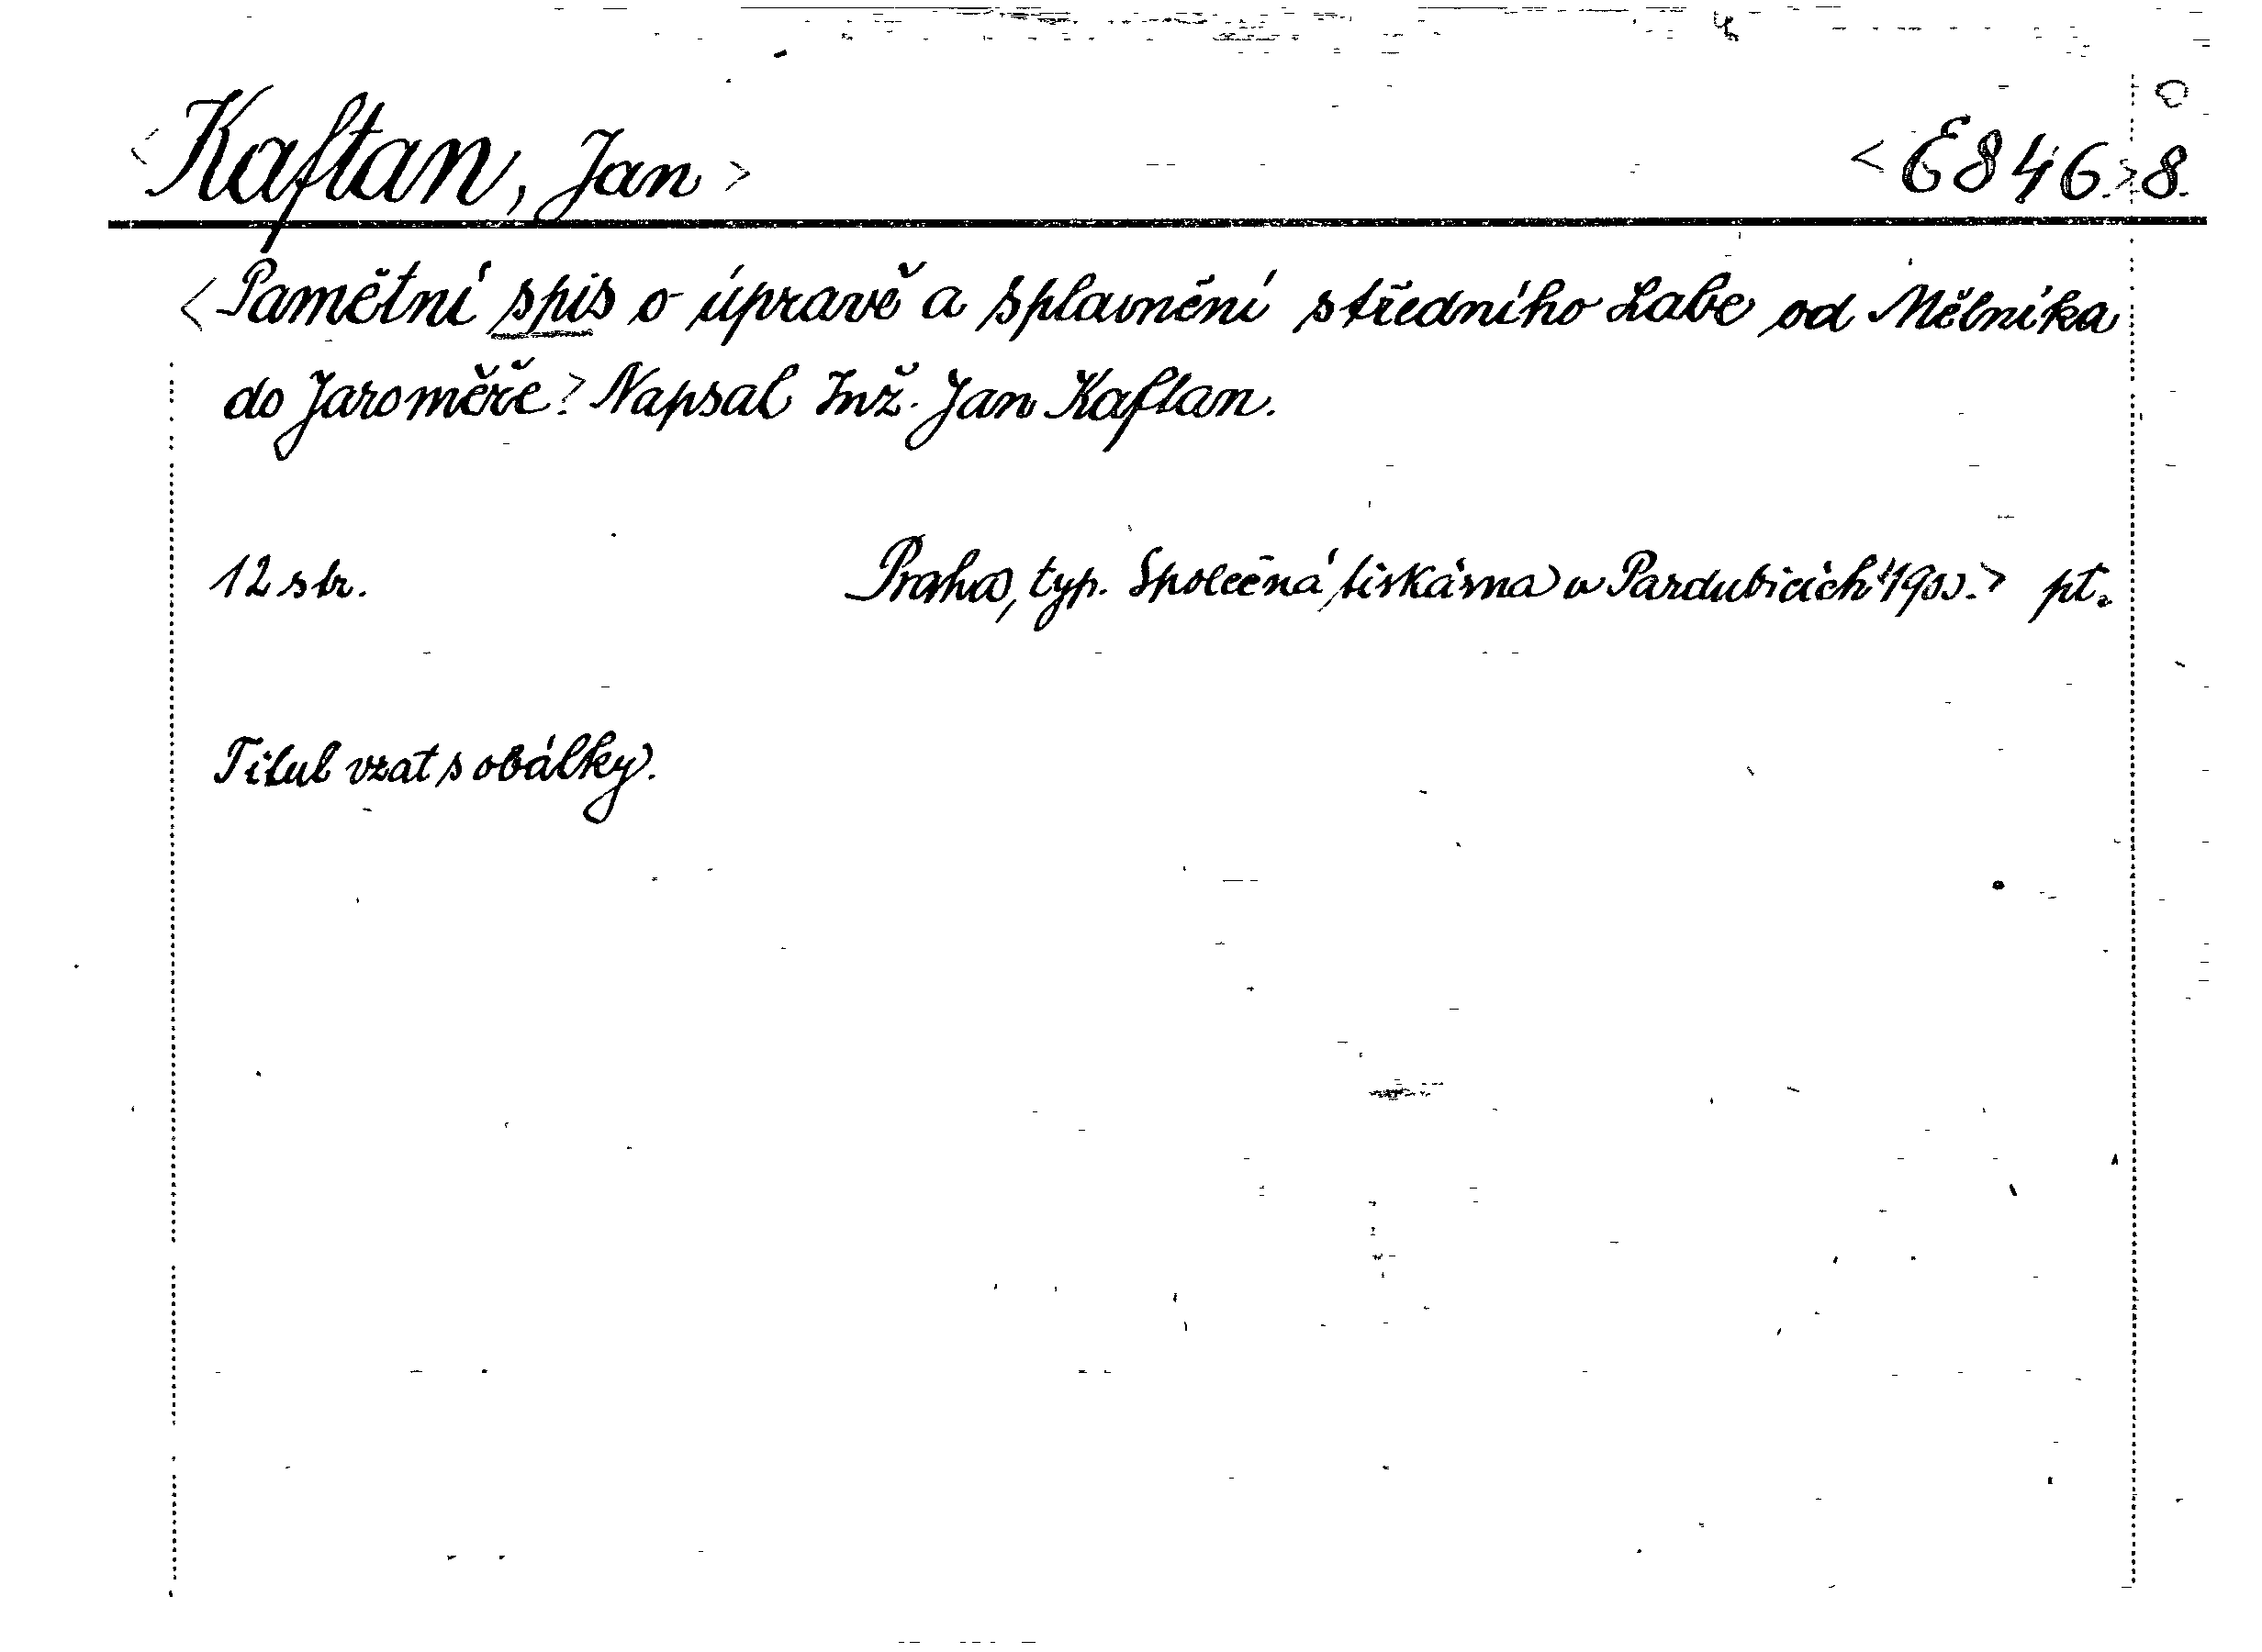 <Kaftan, Jan> <E846.>8.
<Pamětní spis o úpravě a splavnění středního Labe od Mělníka
do Jaroměře? Napsal Inž. Jan Kaftan.
12 str. Praha, typ. Společná tiskárna v Pardubicích 1900.> pt.
Titul vzat s obálky.